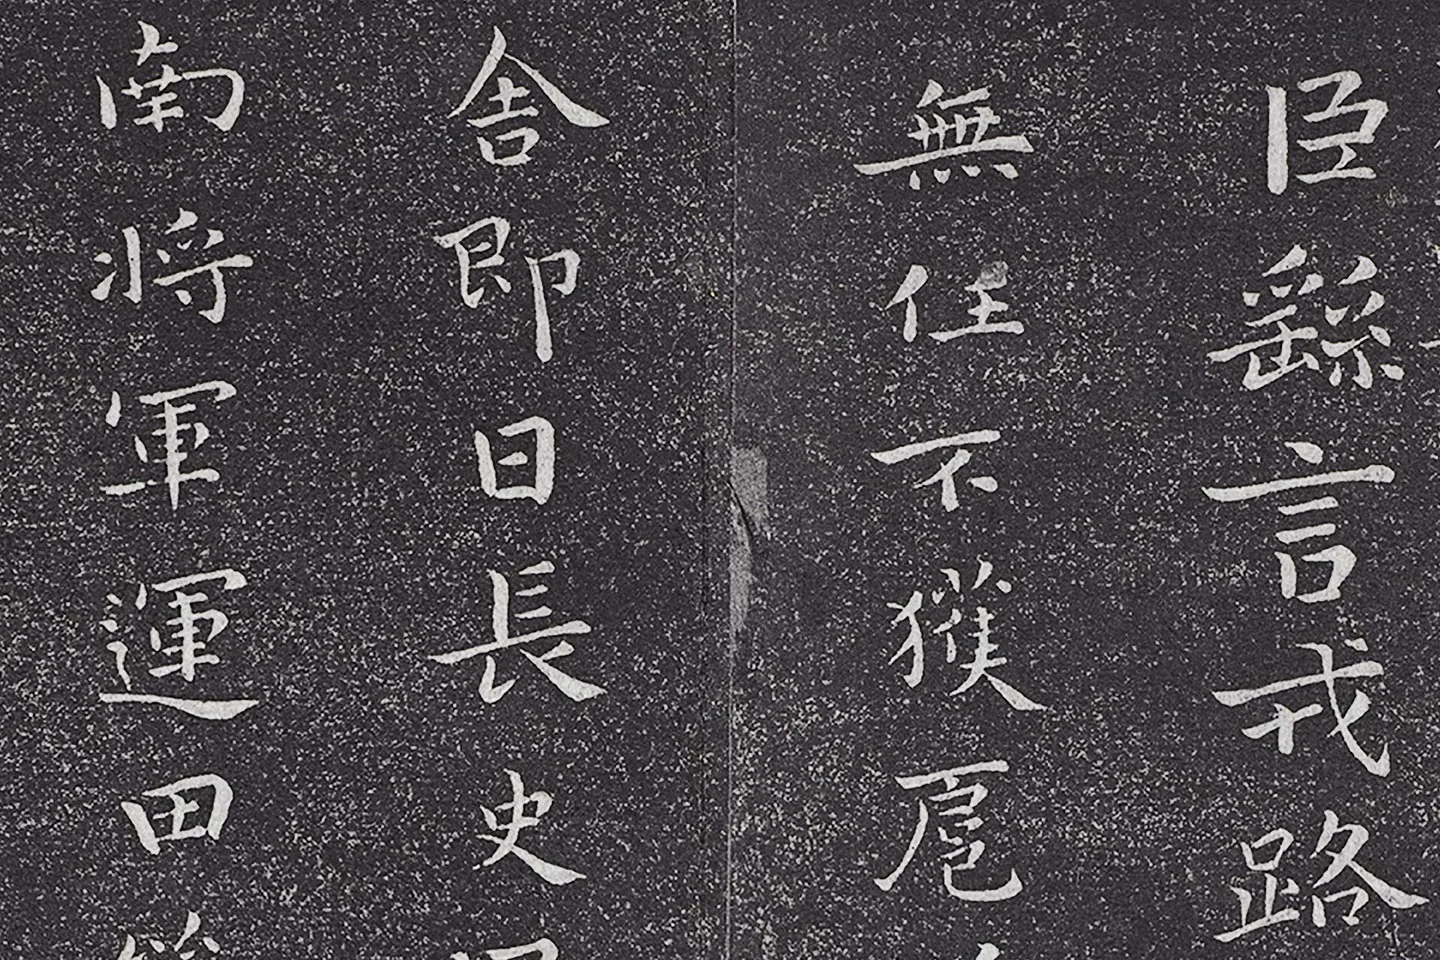 臣繇言戎路
無任不獲扈
舍即日長史
南將軍運田